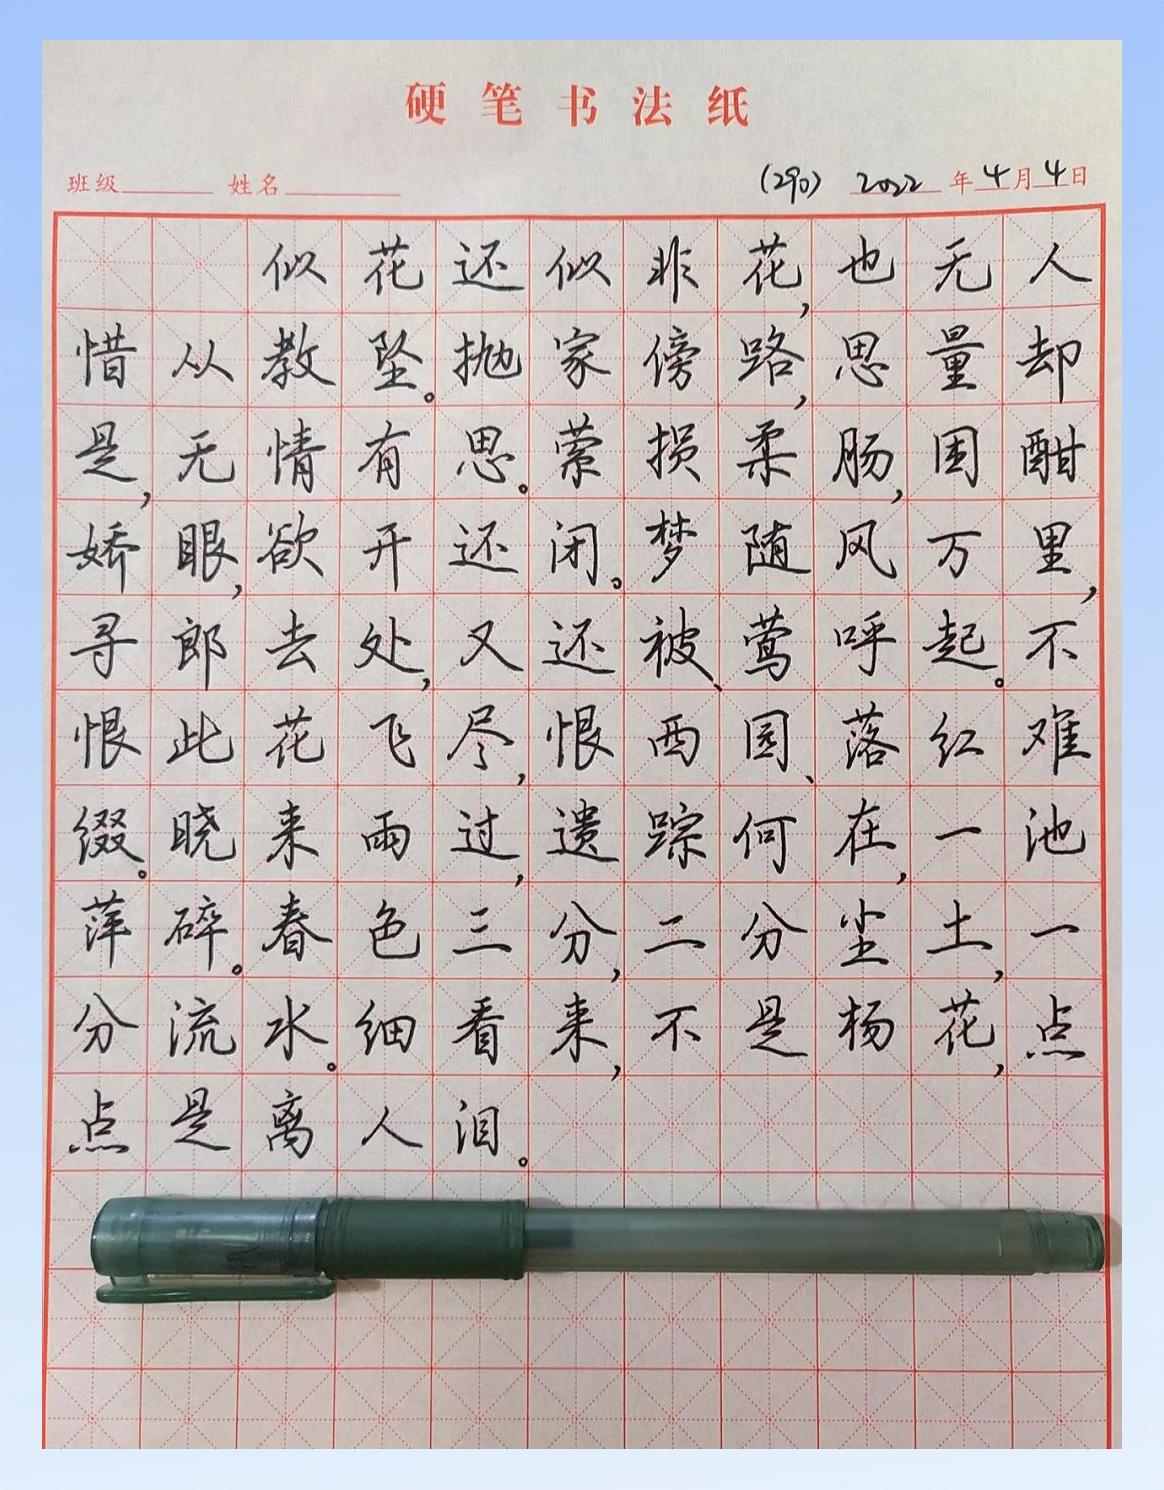 硬笔书法纸
班级 姓名 (290) 2022年4月4日
似花还似非花,也无人
惜从教坠。抛家傍路,思量却
是,无情有思。萦损柔肠,困酣
娇眼,欲开还闭。梦随风万里,
寻郎去处,又还被、莺呼起。不
恨此花飞尽,恨西园、落红难
缀。晓来雨过,遗踪何在,一池
萍碎。春色三分,二分尘土,一
分流水。细看来,不是杨花,点
点是离人泪。